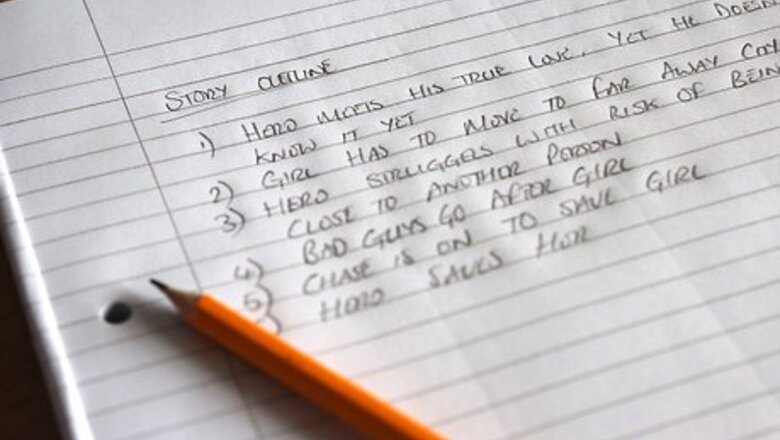 STORY OUTLINE
1) HERO MEETS HIS TRUE LOVE, YET HE DOESN
KNOW IT YET
2) GIRL HAS TO MOVE TO FAR AWAY CITY
3) HERO STRUGGLES WITH RISK OF BEIN
CLOSE TO ANOTHER PERSON
4) BAD GUYS GO AFTER GIRL
5) CHASE IS ON TO SAVE GIRL
) HERO SAVES HER